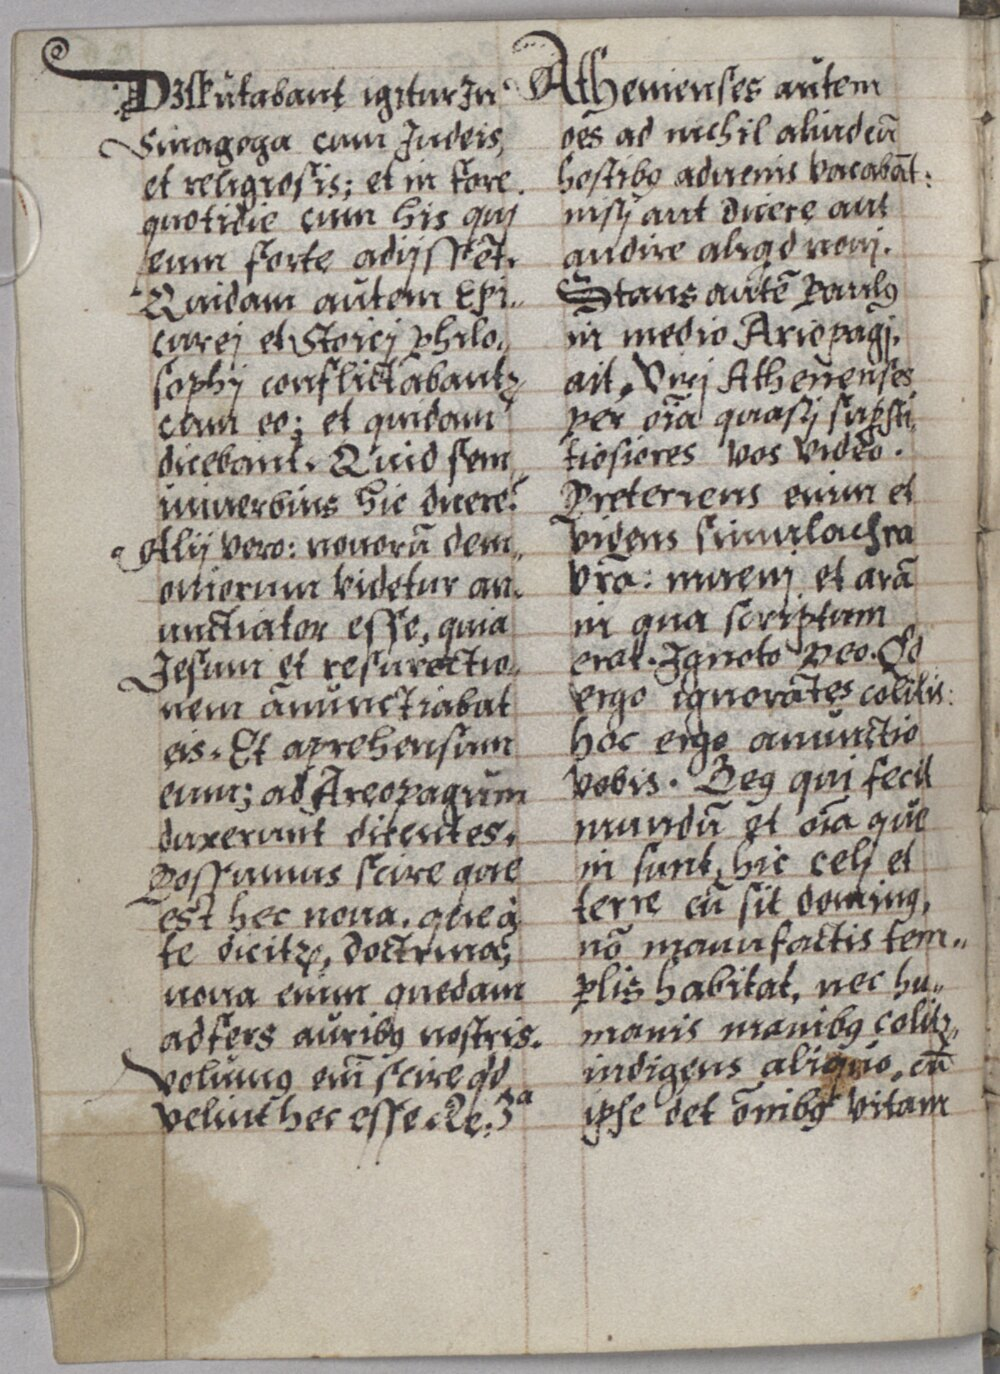 Diskutabant igitur In
Sinagoga cum Judeis,
et religiosis; et in fore.
quotidie cum his qui
eum forte adijssēt.
Quidam autem Epi„
curej et Stoicj philo„
sophij conflictabantꝛ
cum eo; et quidam
dicebant. Quid sem
iniuerbius hic dicere?
Alij vero: nouorū dem„
oniorum videtur an„
unctiator esse, quia
Jesum et resurectio„
nem ānunctiabat
eis. Et aprehensum
eum; ad Areopagum
duxerunt dicentes.
Possumus scire que
est hec noua. que à
te dicitꝛ, doctrina;
noua enim quedam
adfers auribꝰ nostris.
volumꝰ em̄ scire qd
velint hec esse. Re. 3ª
Athenienses autem
oēs ad nichil aliud cū
hostibꝰ aduenis vacabāt:
nisij aut dicere aut
audire aliqd nouj.
Stans autē Paulꝰ
in medio Ariopagj.
ait, Virj Athenenses
per oīa quasij supsti„
tiosiores vos video.
Preteriens enim et
videns simulachra
vr̄a: inuenj et arā
in qua scriptum
erat. Ignoto Deo. Qd
ergo ignorātes colitis:
hoc ergo anunctio
vobis. Deꝰ qui fecit
mundū et oīa que
in sunt, hic celj et
terre cū sit dominꝰ,
nō manufactis tem„
plis habitat, nec hu„
manis manibꝰ colitꝛ„
indigens aliquo, cū
ipse det ōnibꝰ vitam